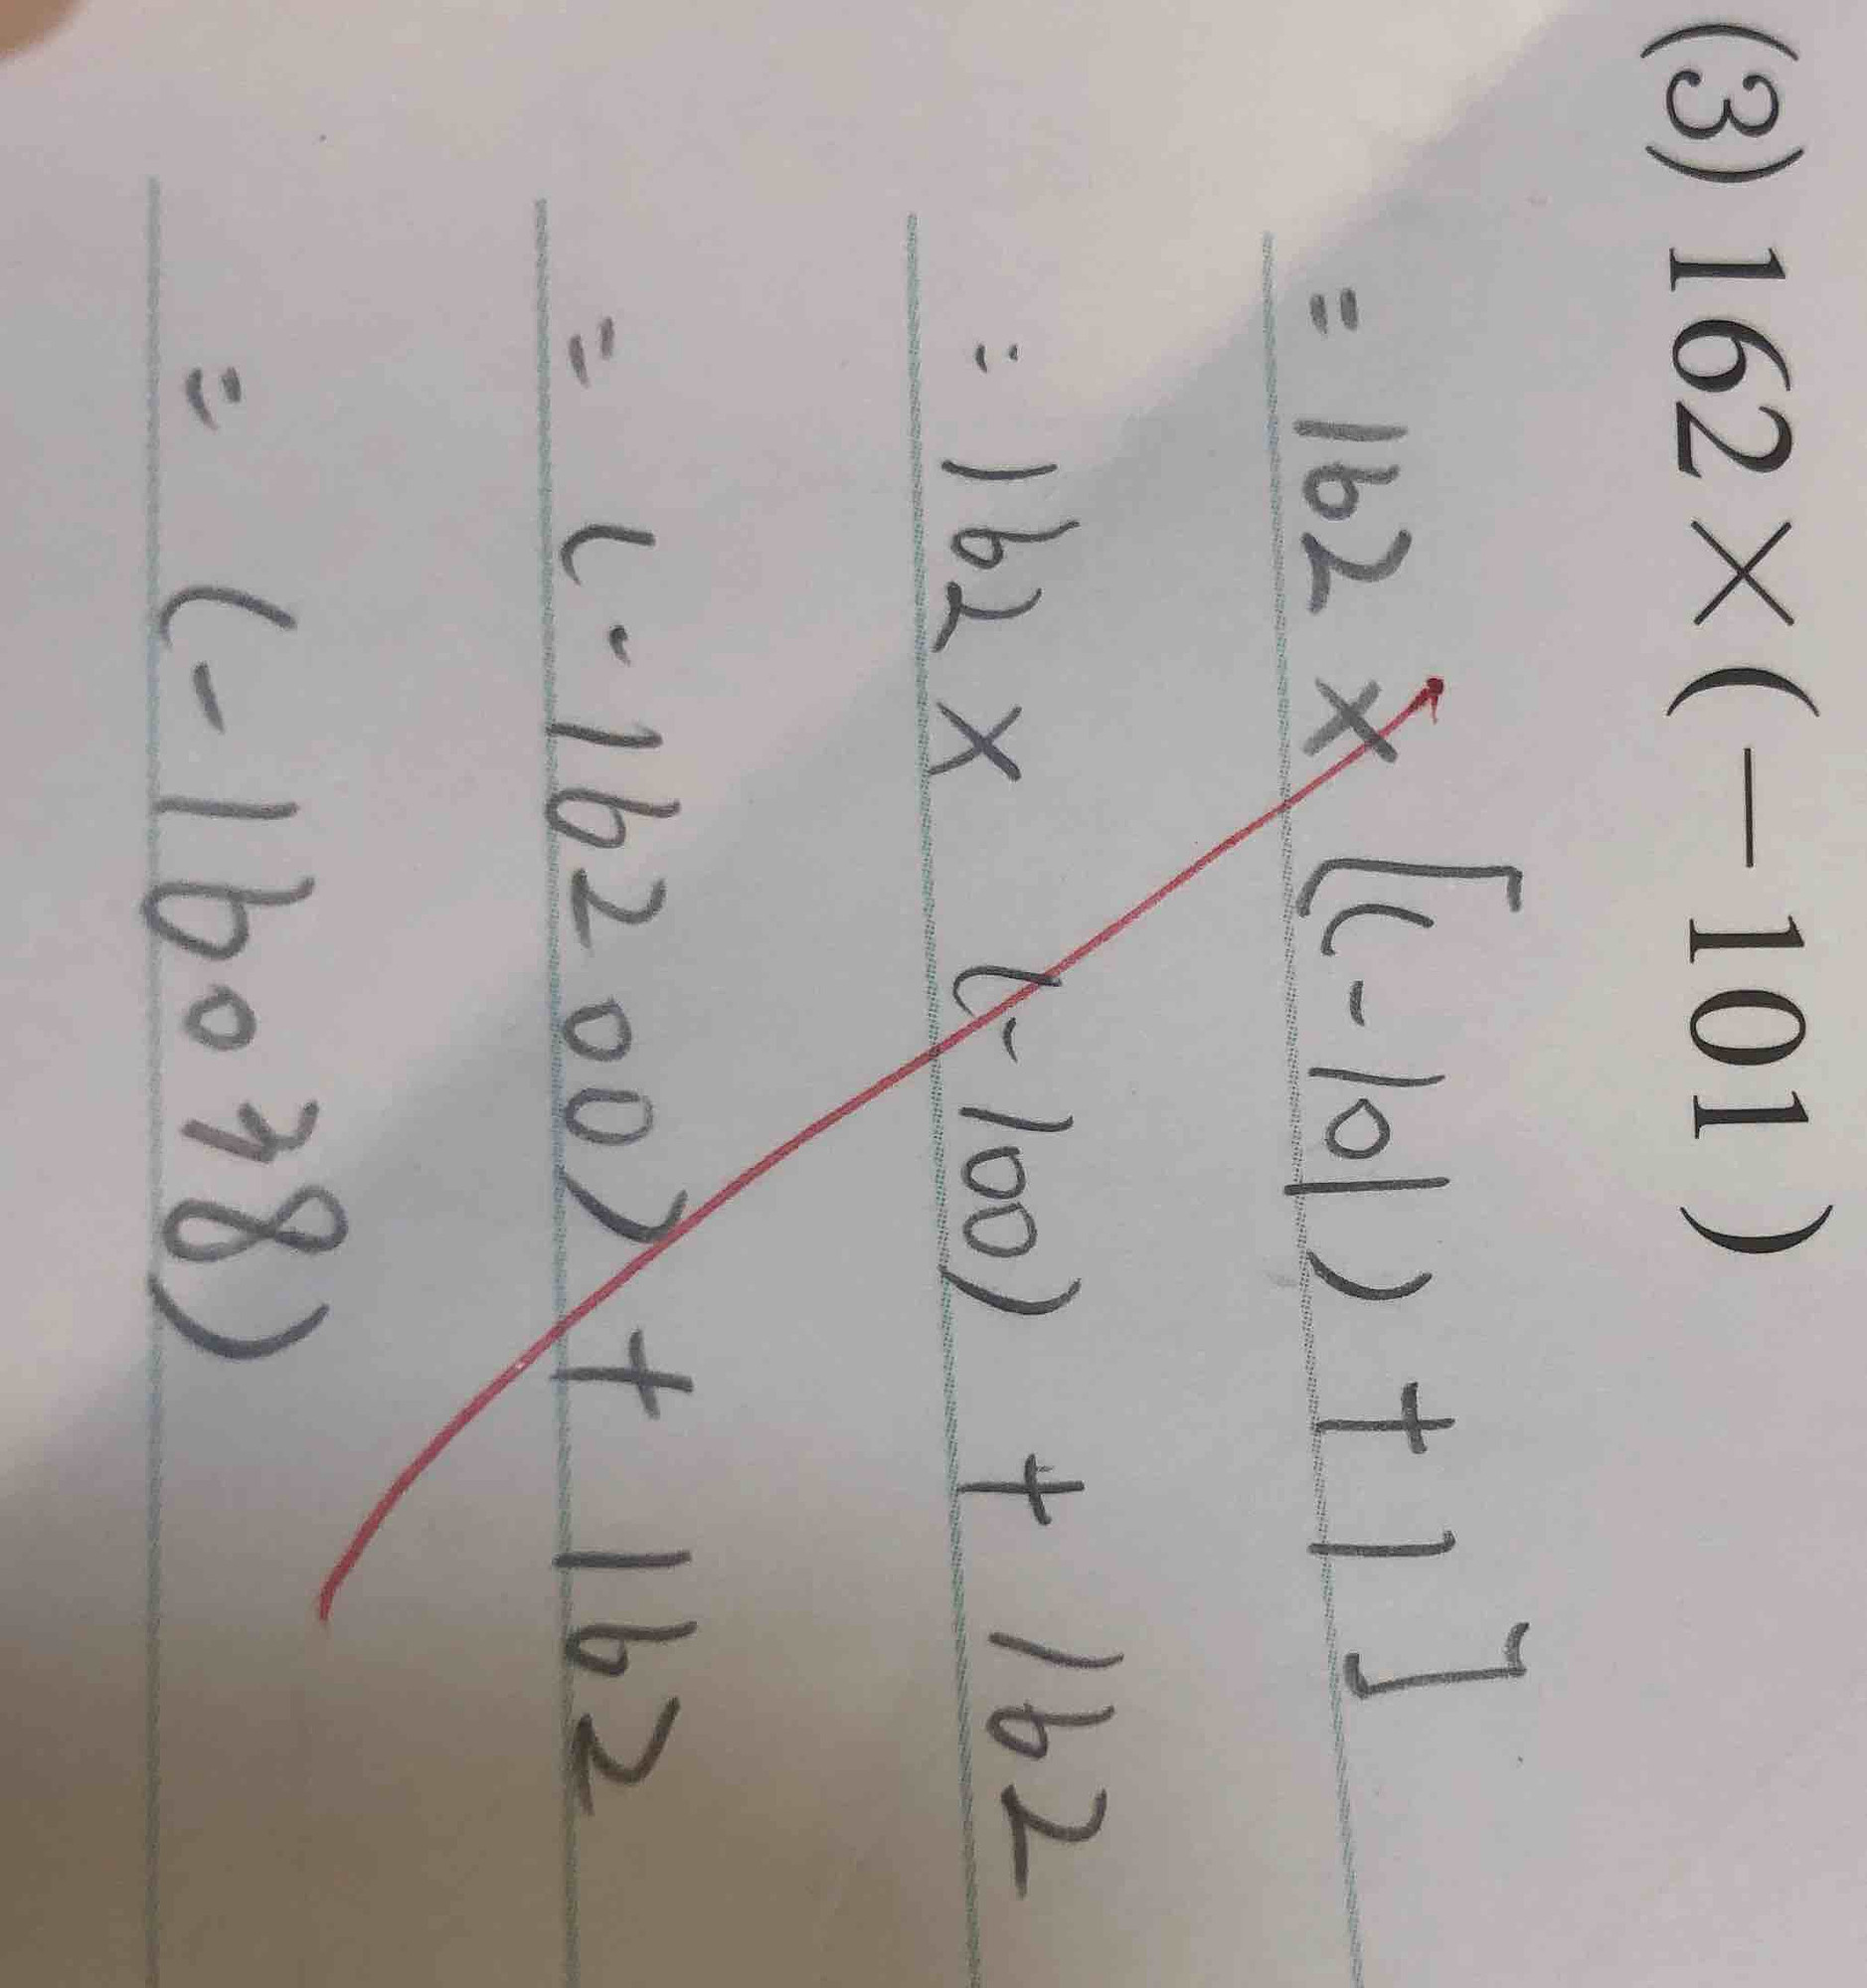 (3) 162×(−101)
= 162 × [(-101) + 1]
= 162 × (-100) + 162
= (-16200) + 162
= (-16078)